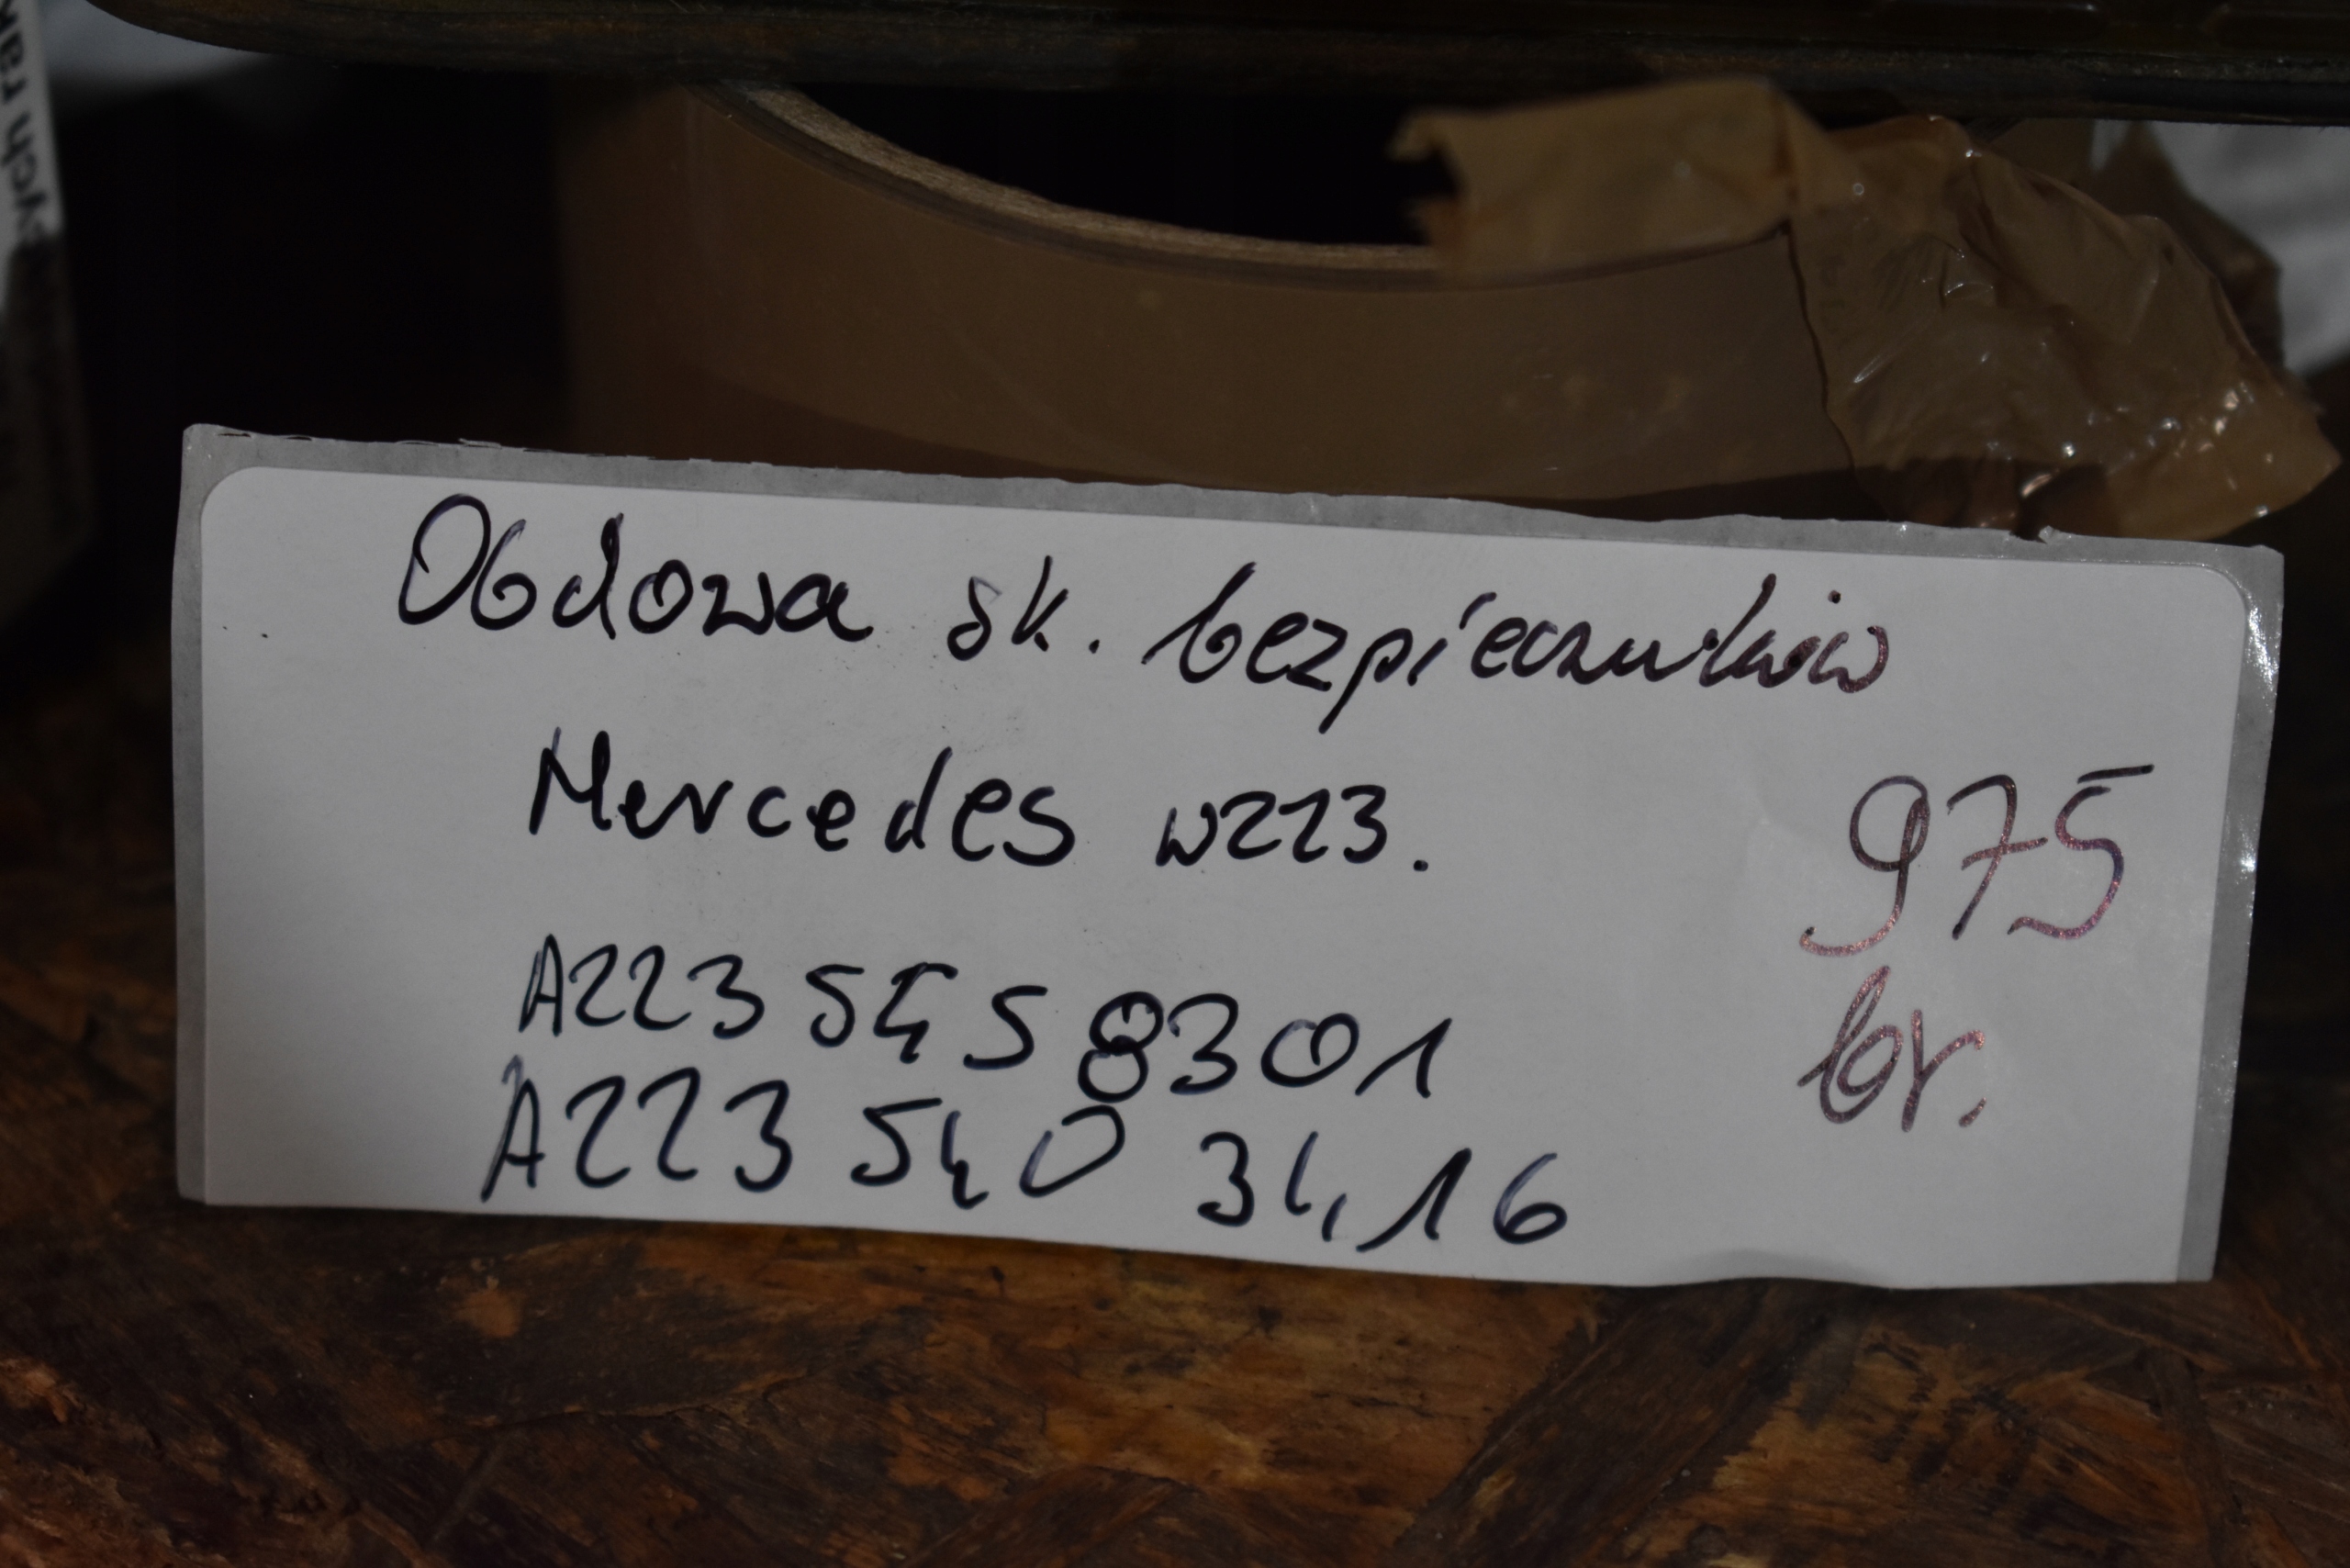 Obdowa sk. bezpieczników
Mercedes w223.
975
br.
A223 545 8301
A223 540 3416